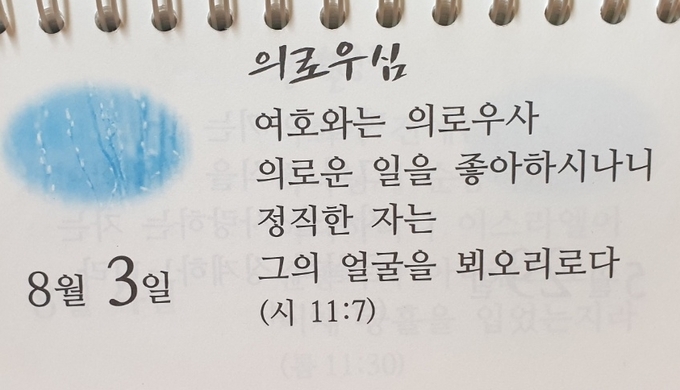 의로우심
여호와는 의로우사
의로운 일을 좋아하시나니
정직한 자는
그의 얼굴을 뵈오리로다
8월 3일
(시 11:7)